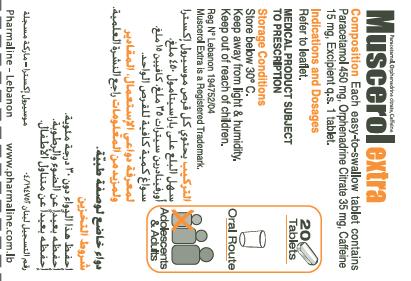 Muscerol extra
Paracetamol, Orphenadrine citrate, Caffeine
Composition Each easy-to-swallow tablet contains
Paracetamol 450 mg, Orphenadrine Citrate 35 mg, Caffeine
15 mg, Excipient q.s. 1 tablet.
Indications and Dosages
Refer to leaflet.
MEDICAL PRODUCT SUBJECT
TO PRESCRIPTION
Storage Conditions
Store below 30° C.
Keep away from light & humidity.
Keep out of reach of children.
Reg N° Lebanon 194752/04
Muscerol Extra is a Registered Trademark.
20
Tablets
Oral Route
Adolescents
& Adults
التركيب يحتوي كل قرص موسيرول إكسترا
سهل البلع على باراسيتامول ٤٥٠ ملغ،
أورفينادرين سيترات ٣٥ ملغ، كافيين ١٥ ملغ،
سواغ كمية كافية للقرص الواحد.
لمعرفة دواعي الاستعمال، المقادير
ولمزيد من المعلومات راجع النشرة العلمية.
دواء خاضع لوصفة طبيّة.
شروط التخزين
إحفظ هذا الدواء دون ٣٠ درجة مئوية.
إحفظه بعيدا عن الضوء والرطوبة.
إحفظه بعيدا عن متناول الأطفال.
موسيرول إكسترا ماركة مسجلة
رقم التسجيل لبنان ١٩٤٧٥٢/٠٤
Pharmaline - Lebanon www.pharmaline.com.lb